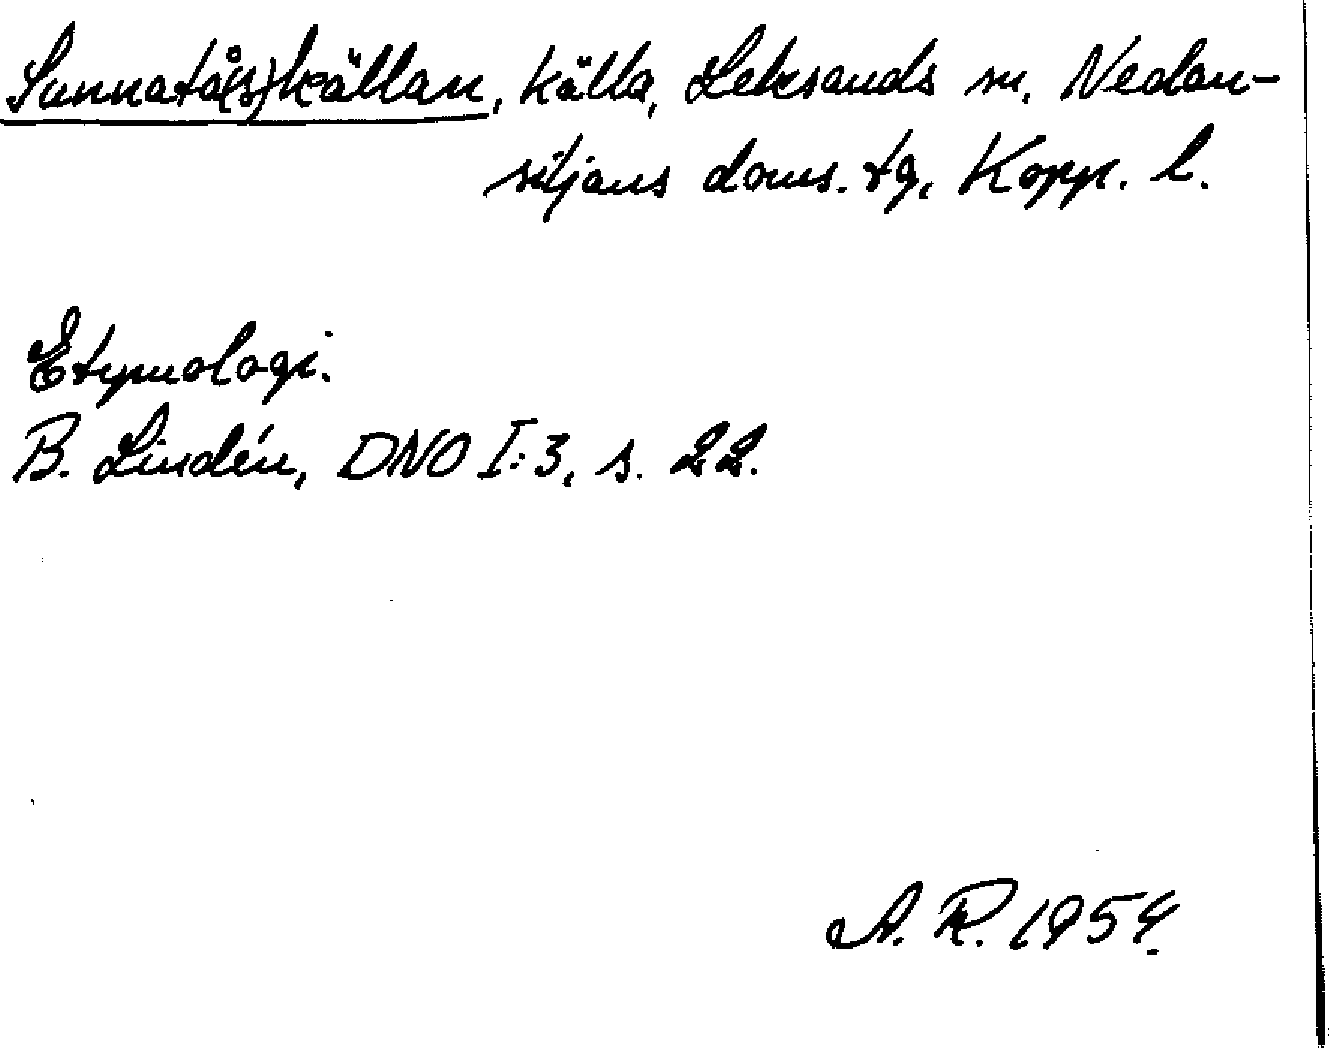 Sunnatå(s)källan, källa, Leksands sn, Nedan-
siljans doms. tg, Kopp. l.
Etymologi.
B. Lindén, DNO I:3, s. 22.
A. R. 1954.